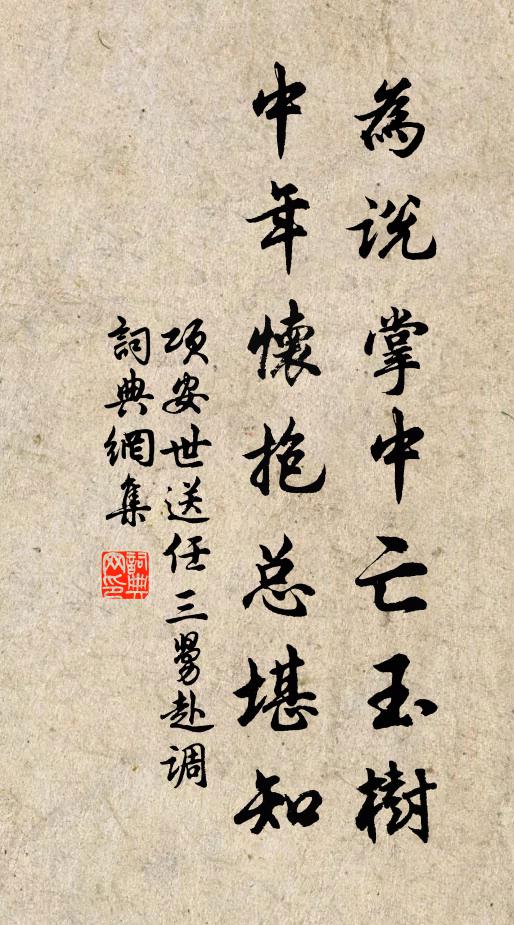 為说掌中亡玉樹
中年懷抱总堪知
项安世送任三舅赴调
詞典網集
詞典网印